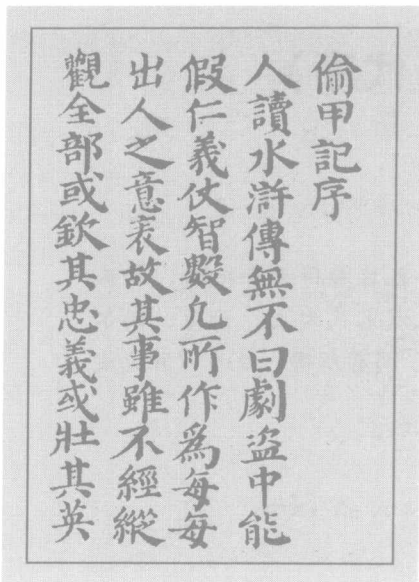 偷甲記序
人讀水滸傳無不曰劇盜中能
假仁義仗智數凢所作爲每每
出人之意表故其事雖不經縱
觀全部或欽其忠義或壯其英